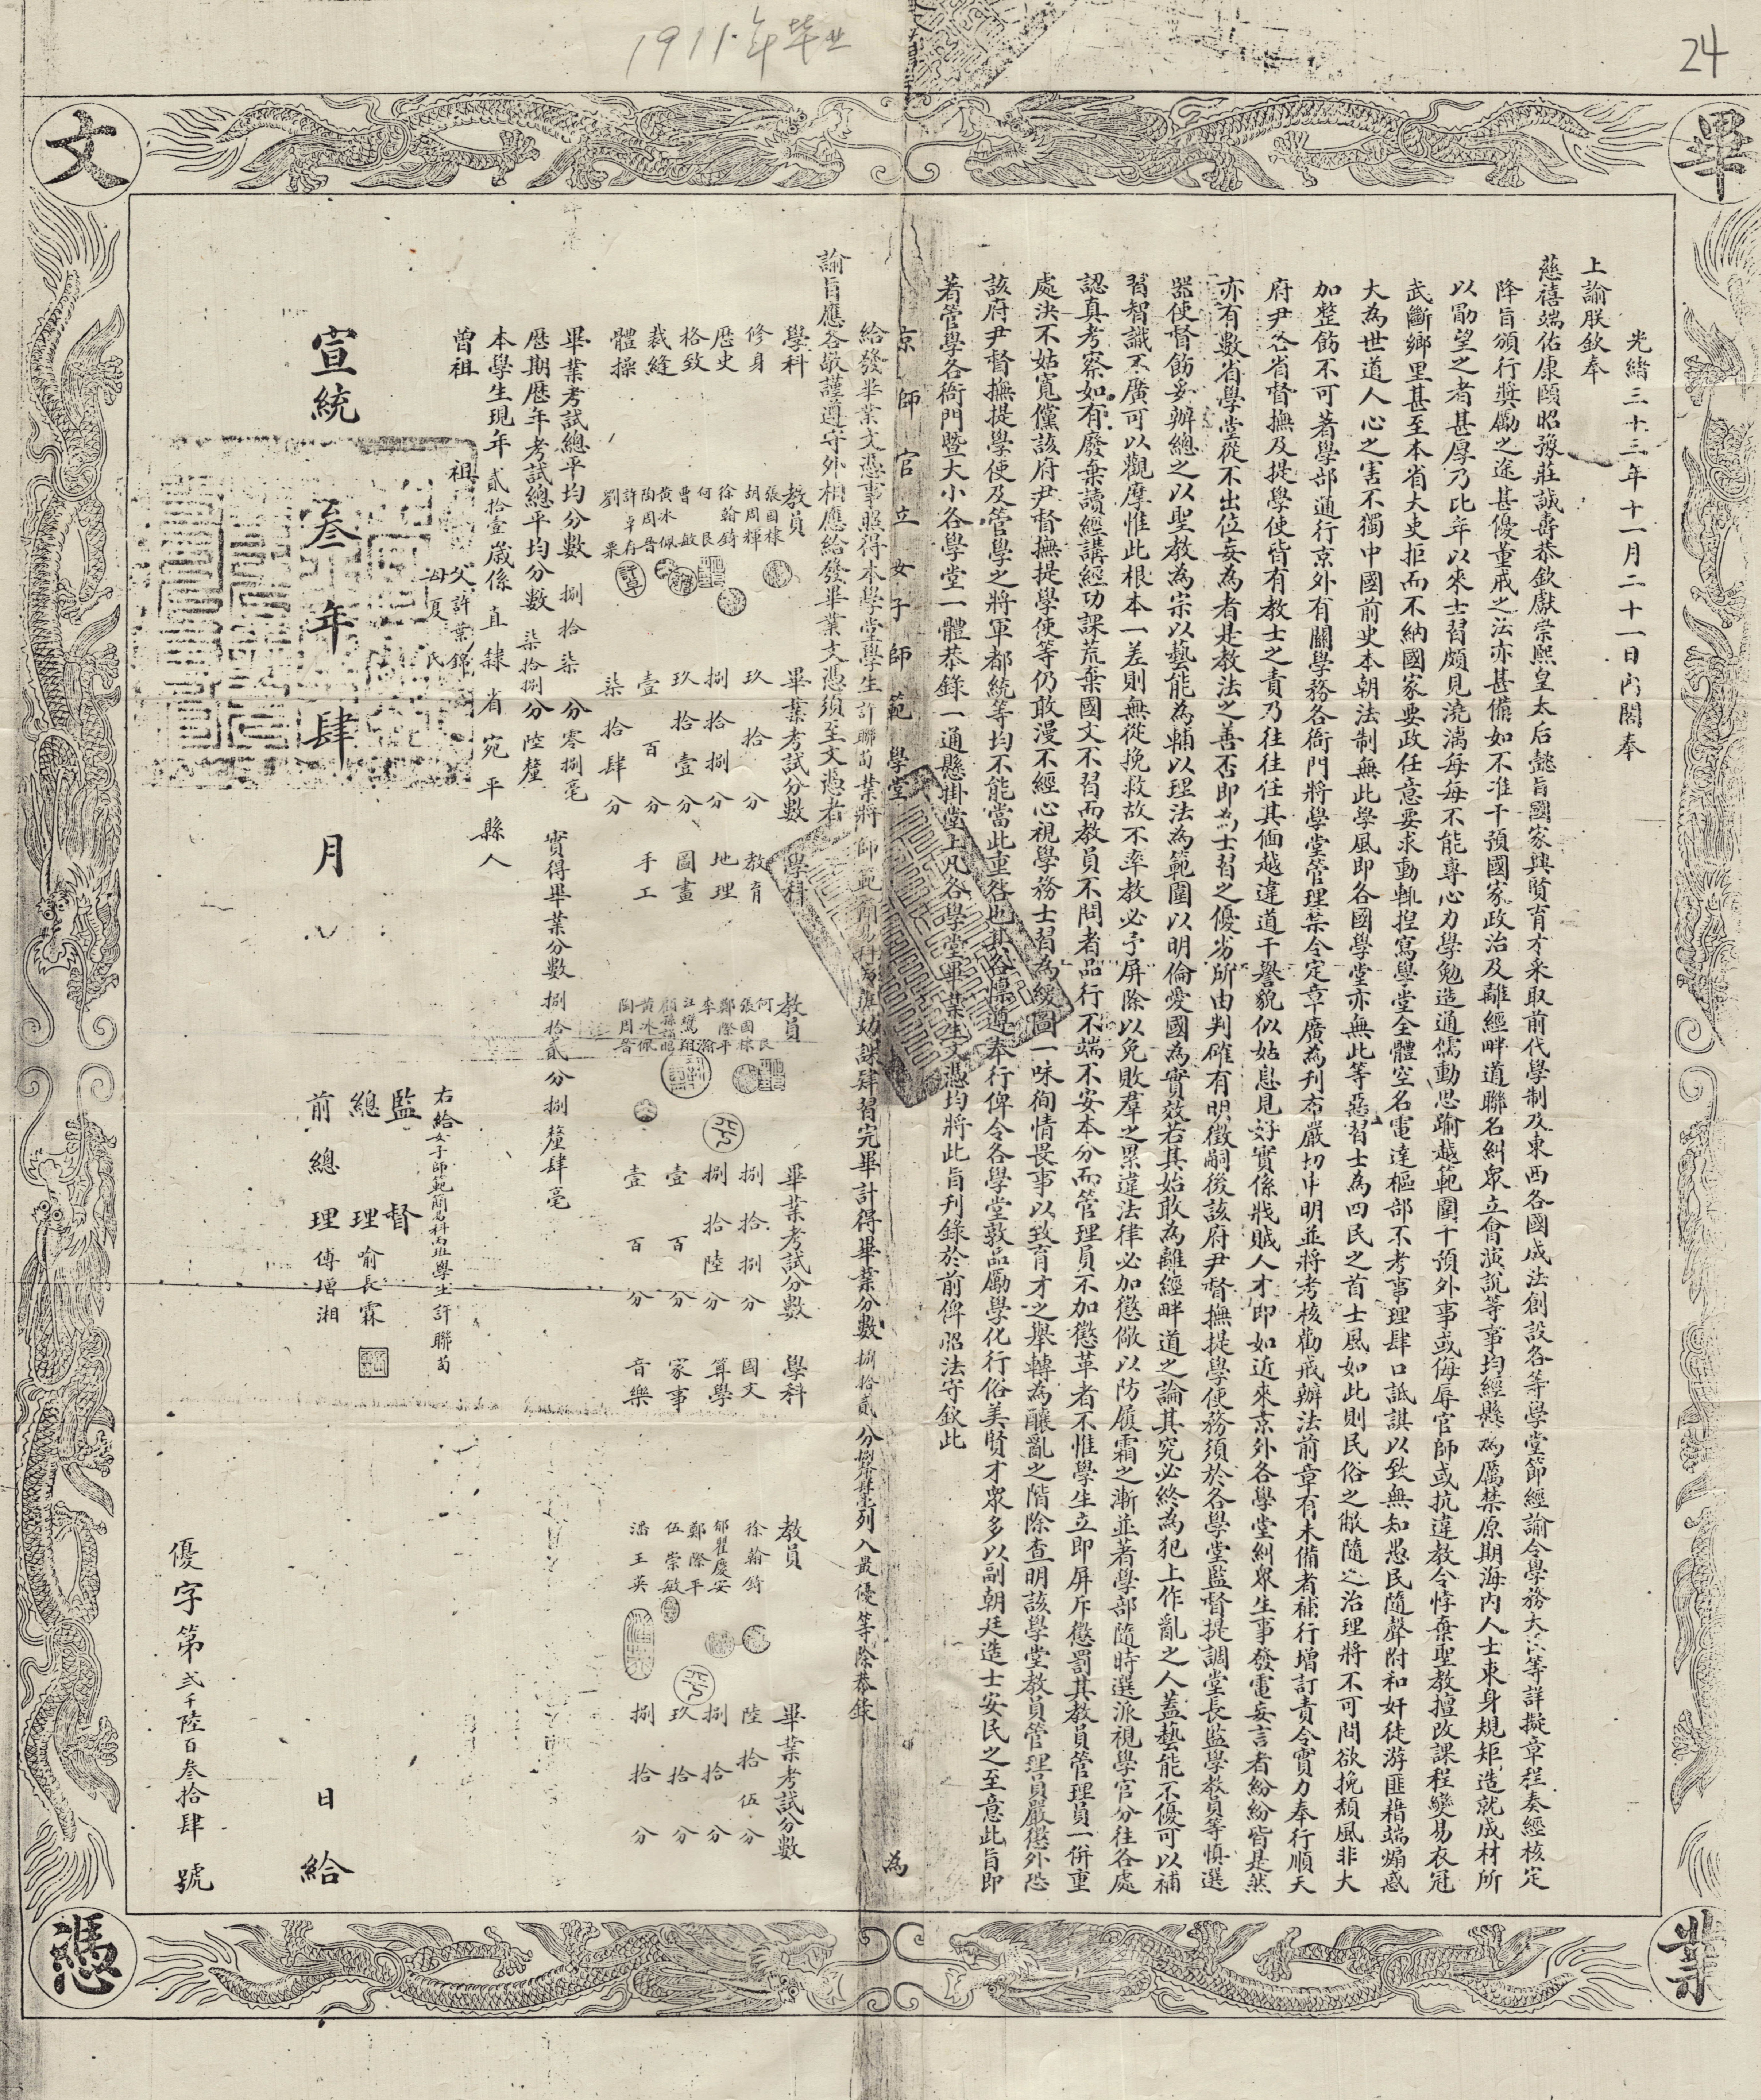 1911.年毕业
24
畢
業
文
憑
光緒三十三年十一月二十一日內閣奉
上諭朕欽奉
慈禧端佑康頤昭豫莊誠壽恭欽獻崇熙皇太后懿旨國家興賢育才采取前代學制及東西各國成法創設各等學堂節經諭令學務大臣等詳擬章程奏經核定
降旨頒行獎勵之途甚優董戒之法亦甚備如不准干預國家政治及離經畔道聯名糾眾立會演說等事均經懸為厲禁原期海內人士束身規矩造就成材所
以勖望之者甚厚乃比年以來士習頗見澆漓每每不能專心力學勉造通儒動思踰越範圍干預外事或侮辱官師或抗違教令悖棄聖教擅改課程變易衣冠
武斷鄉里甚至本省大吏拒而不納國家要政任意要求動輒捏寫學堂全體空名電達樞部不考事理肆口詆諆以致無知愚民隨聲附和奸徒游匪藉端煽惑
大為世道人心之害不獨中國前史本朝法制無此學風即各國學堂亦無此等惡習士為四民之首士風如此則民俗之敝隨之治理將不可問欲挽頹風非大
加整飭不可著學部通行京外有關學務各衙門將學堂管理禁令定章廣為刊布嚴切申明並將考核勸戒辦法前章有未備者補行增訂責令實力奉行順天
府尹各省督撫及提學使皆有教士之責乃往往任其偭越違道干譽貌似姑息見好實係戕賊人才即如近來京外各學堂糾眾生事發電妄言者紛紛皆是然
亦有數省學堂從不出位妄為者是教法之善否即為士習之優劣所由判確有明徵嗣後該府尹督撫提學使務須於各學堂監督提調堂長監學教員等慎選
器使督飭妥辦總之以聖教為宗以藝能為輔以理法為範圍以明倫愛國為實效若其始敢為離經畔道之論其究必終為犯上作亂之人蓋藝能不優可以補
習智識不廣可以觀摩惟此根本一差則無從挽救故不率教必予屏除以免敗羣之累違法律必加懲儆以防履霜之漸並著學部隨時選派視學官分往各處
認真考察如有廢棄讀經講經功課荒棄國文不習而教員不問者品行不端不安本分而管理員不加懲革者不惟學生立即屏斥懲罰其教員管理員一併重
處決不姑寬儻該府尹督撫提學使等仍敢漫不經心視學務士習為緩圖一味徇情畏事以致育才之舉轉為釀亂之階除查明該學堂教員管理員嚴懲外恐
該府尹督撫提學使及管學之將軍都統等均不能當此重咎也其各懍遵奉行俾令各學堂敦品勵學化行俗美賢才眾多以副朝廷造士安民之至意此旨即
著管學各衙門暨大小各學堂一體恭錄一通懸掛堂上凡各學堂畢業生文憑均將此旨刊錄於前俾昭法守欽此
京師官立女子師範學堂 為
給發畢業文憑事照得本學堂學生許聯荀業將師範簡易科丙班功課肄習完畢計得畢業分數捌拾貳分捌釐肆毫列入最優等除恭錄
諭旨應各敬謹遵守外相應給發畢業文憑須至文憑者
學科 教員 畢業考試分數 學科 教員 畢業考試分數 學科 教員 畢業考試分數
修身 張國棣 胡周輝 玖拾分 教育 何良 張國棣 捌拾捌分 國文 徐翰錡 陸拾伍分
歷史 徐翰錡 捌拾捌分 地理 鄭際平 李瀚 捌拾陸分 算學 郁瞿慶安 鄭際平 捌拾分
格致 何良 曹敏 玖拾壹分 圖畫 汪鸞翔 壹百分 家事 伍崇敏 玖拾分
裁縫 黃冰佩 陶周晋 壹百分 手工 黃冰佩 陶周晋 壹百分 音樂 潘王英 捌拾分
體操 柒拾肆分
畢業考試總平均分數 捌拾柒分零捌毫
歷期歷年考試總平均分數 柒拾捌分陸釐
實得畢業分數捌拾貳分捌釐肆毫
本學生現年貳拾壹歲係直隸省宛平縣人
曾祖 祖 父許葉錦
母夏氏
右給女子師範簡易科丙班學生許聯荀
監督
總理喻長霖
前總理傅增湘
宣統叁年肆月 日給
優字第貳千陸百叁拾肆號